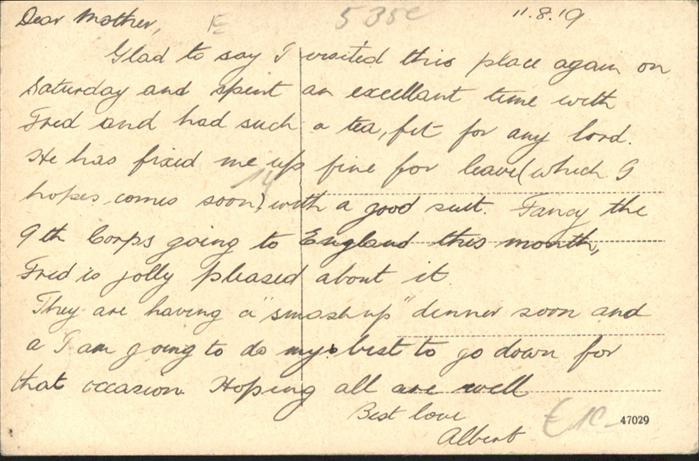 11.8.19
Dear Mother,
E 535c
Glad to say I visited this place again on
Saturday and spent an excellant time with
Fred and had such a tea, fit for any lord.
He has fixed me up fine for leave (which I
hopes comes soon) with a good suit. Fancy the
9th Corps going to England this month,
Fred is jolly pleased about it
They are having a "smash up" dinner soon and
a I am going to do my best to go down for
that occasion. Hoping all are well
Best love
Albert
47029